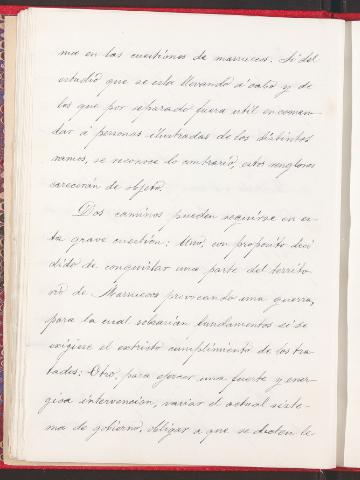 ma en las cuestiones de marruecos. Si del
estudio que se esta llevando á cabo y de
los que por separado fuera util encomen-
dar á personas ilustradas de los distintos
ramos, se reconoce lo contrario, estos renglones
carecerán de objeto.
Dos caminos pueden seguirse en es-
ta grave cuestión; Uno, con propósito deci
dido de conquistar una parte del territo-
rio de Marruecos provocando una guerra,
para la cual sobrarían fundamentos si se
exigiese el extricto cumplimiento de los tra-
tados; Otro, para ejercer una fuerte y ener-
gica intervencion, variar el actual siste-
ma de gobierno, obligar a que se dicten le-